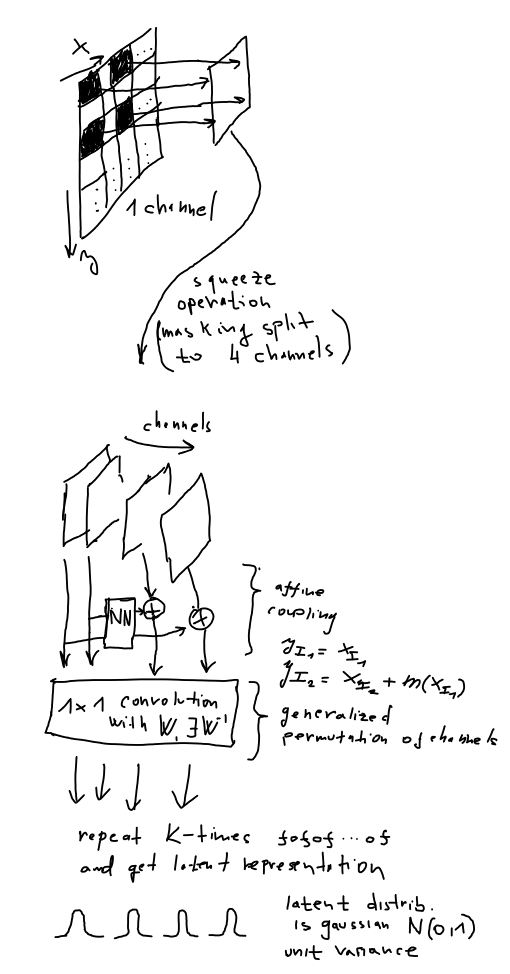 x
1 channel
y
squeeze
operation
(masking split
to 4 channels)
channels
NN
+
+
affine
coupling
y_I₁ = x_I₁
y_I₂ = x_I₂ + m(x_I₁)
1×1 convolution
with W, ∃W⁻¹
generalized
permutation of channels
repeat K-times fofof...of
and get latent representation
latent distrib.
is gaussian N(0,1)
unit variance